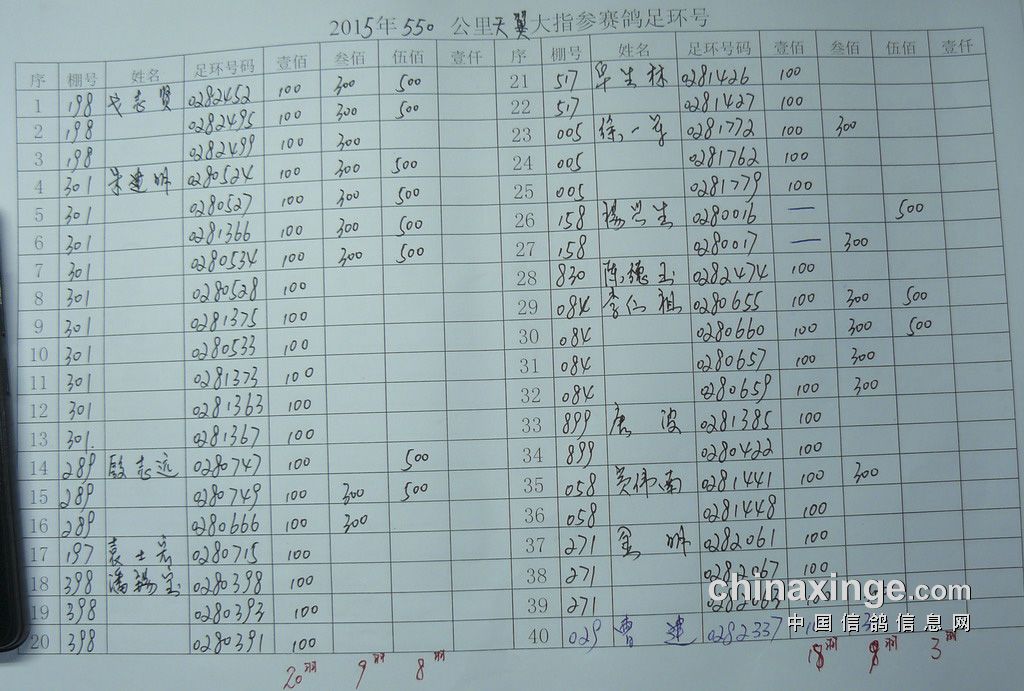 2015年550公里天翼大指参赛鸽足环号
序 棚号 姓名 足环号码 壹佰 叁佰 伍佰 壹仟
1 198 志贤 0282452 100 300 500
2 198 0282495 100 300 500
3 198 0282499 100 300
4 301 朱建明 0280524 100 300 500
5 301 0280527 100 300 500
6 301 0281366 100 300 500
7 301 0280534 100 300 500
8 301 0280528 100
9 301 0281375 100
10 301 0280533 100
11 301 0281373 100
12 301 0281363 100
13 301. 0281367 100
14 289 殷志远 0280747 100 500
15 289 0280749 100 300 500
16 289 0280666 100 300
17 197 袁士 0280715 100
18 398 潘锡 0280398 100
19 398 0280393 100
20 398 0280391 100
20羽 9羽 8羽
序 棚号 姓名 足环号码 壹佰 叁佰 伍佰 壹仟
21 517 华生林 0281426 100
22 517 0281427 100
23 005 徐一 0281772 100 300
24 005 0281762 100
25 005 0281779 100
26 158 杨兴生 0280016 — 500
27 158 0280017 — 300
28 830 陈德玉 0282474 100
29 084 李仁祖 0280655 100 300 500
30 084 0280660 100 300 500
31 084 0280657 100 300
32 084 0280659 100 300
33 899 唐波 0281385 100
34 899 0280422 100
35 058 吴伟南 0281441 100 300
36 058 0281448 100
37 271 金明 0282061 100
38 271 0282067 100
39 271 0282063
40 029 曹建 0282337
18羽 羽 3羽
chinaxinge.com
中国信鸽信息网